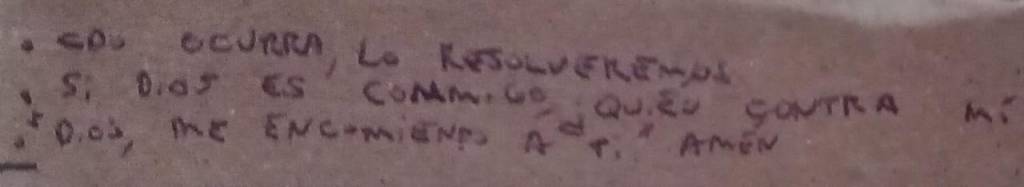 . OCURRA, LO RESOLVEREMOS
. Si DiOS ES CONMiGO, QUiEN CONTRA Mi
. DiOS, ME ENCOMIENDO A "Ti" AMEN